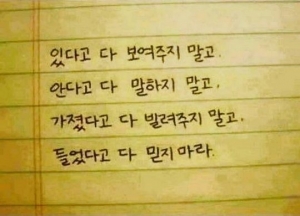 있다고 다 보여주지 말고.
안다고 다 말하지 말고,
가졌다고 다 빌려주지 말고,
들었다고 다 믿지 마라.